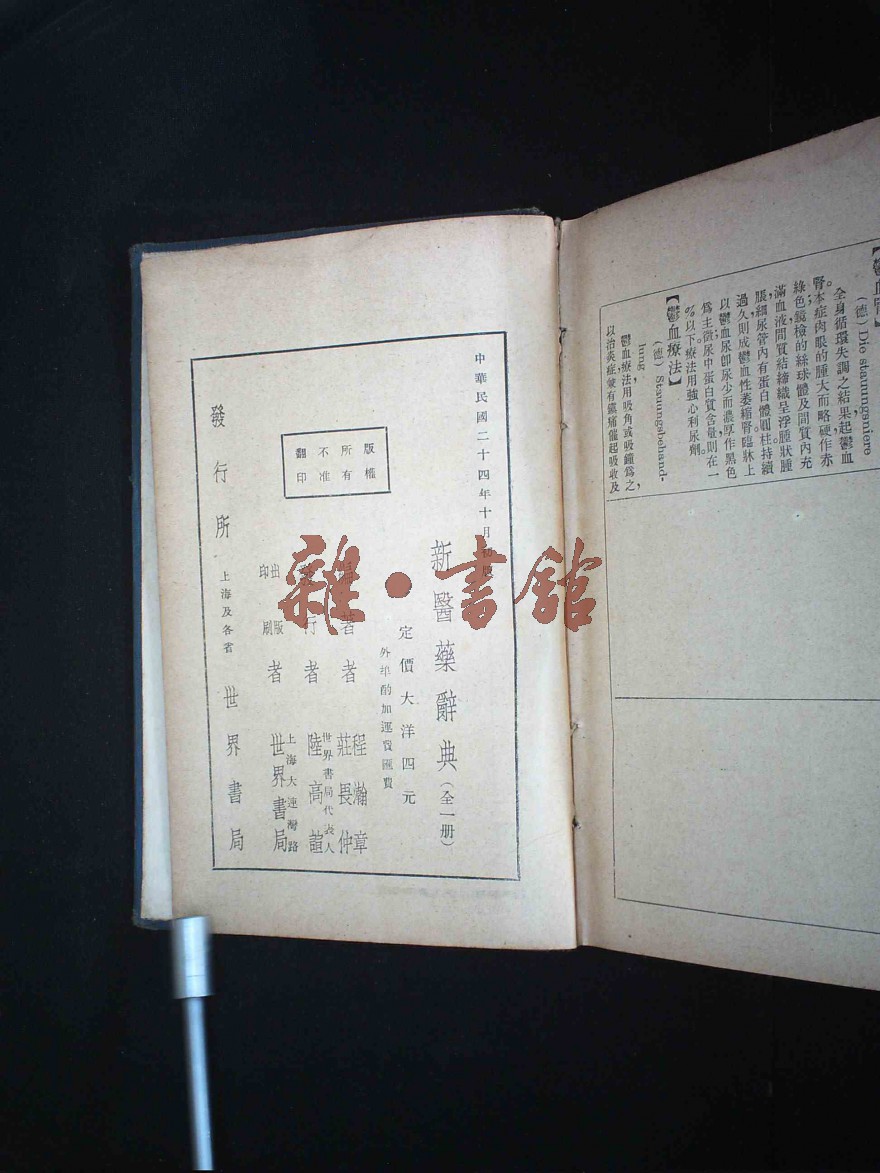 【鬱血腎】
(德) Die stauungsniere
全身循環失調之結果起鬱血
腎。本症肉眼的腫大而略硬作赤
綠色；鏡檢的絲球體及間質內充
滿血液間質結締織呈浮腫狀腫
脹，細尿管內有蛋白體圓柱持續
過久則成鬱血性萎縮腎。臨牀上
以鬱血尿卽尿少而濃厚作黑色
爲主徵；尿中蛋白質含量則在一
%以下療法用強心利尿劑。
【鬱血療法】
(德) Stauungsbehand-
lung,
鬱血療法用吸角或吸鐘爲之，
以治炎症兼有鎮痛催起吸收及
中華民國二十四年十月初版
新醫藥辭典(全一册)
定價大洋四元
外埠酌加運費匯費
編著者 程瀚章 莊畏仲
發行者 世界書局代表人 陸高誼
出版印刷者 上海大連灣路 世界書局
發行所 上海及各省 世界書局
版權
所有
不准
翻印
雜·書館